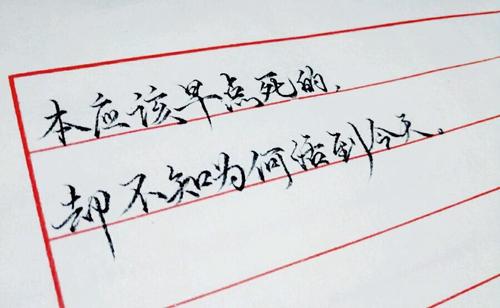 本应该早点死的，
却不知为何活到今天。